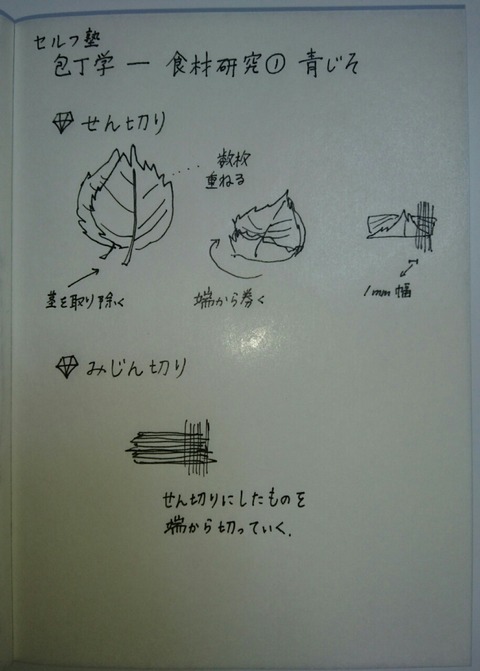 セルフ塾
包丁学 ― 食材研究① 青じそ
せん切り
数枚
重ねる
茎を取り除く
端から巻く
1mm幅
みじん切り
せん切りにしたものを
端から切っていく.